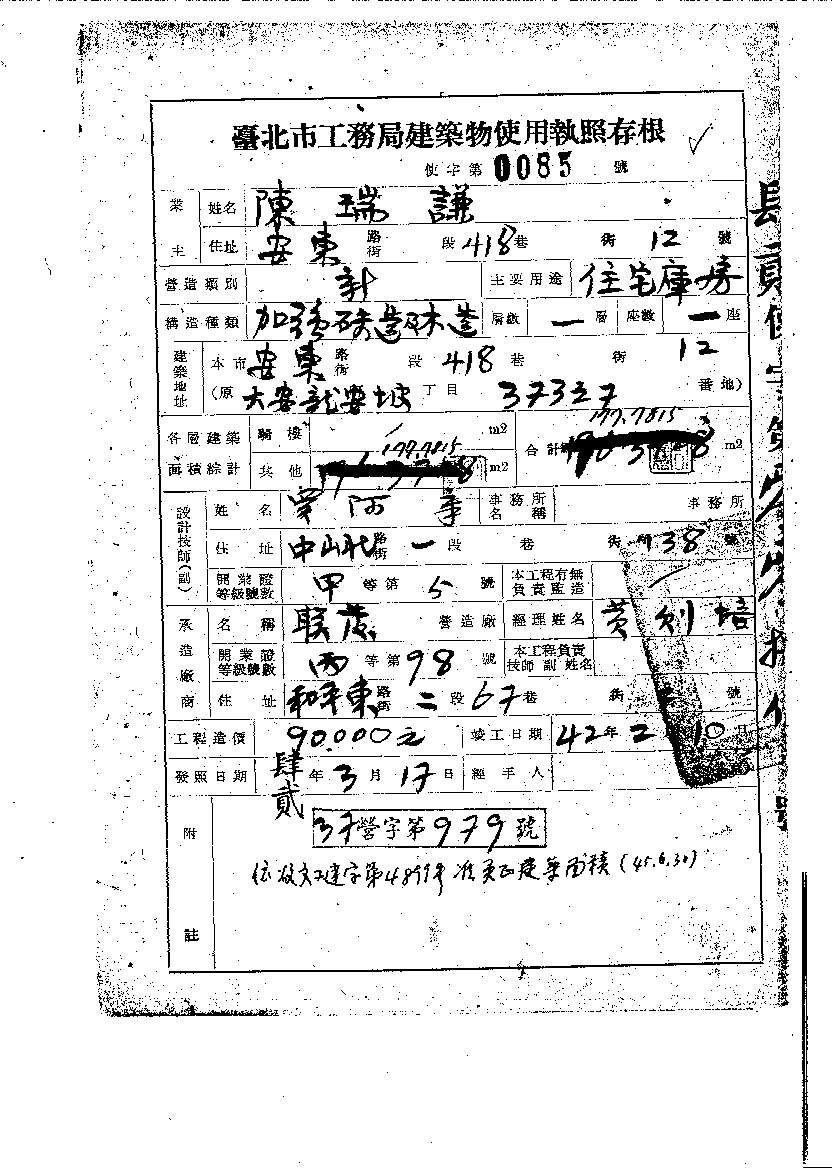 臺北市工務局建築物使用執照存根
使字第0085號
業主 姓名 陳瑞謙
住址 安東 路街 段 418巷 街 12 號
營造類別 新 主要用途 住宅庫房
構造種類 加強磚造磚木造 層數 一 層 座數 一 座
建築地址 本市 安東 路街 段 418巷 街 12
(原 大安龍安坡 丁目 37327 番地)
各層建築面積綜計 騎樓 / m2 合計 177.7815 m2
其他 177.7815 m2
設計技師(副) 姓名 阿 事務所名稱 事務所
住址 中山北 路街 一段 巷 街 138 號
開業證等級號數 甲 等第 5 號 本工程有無負責監造
承造廠商 名稱 联茂 營造廠 經理姓名 黃則培
開業證等級號數 丙 等第 98 號 本工程負責技師副姓名
住址 和平東 路街 二段 67巷 街 號
工程造價 90.000元 竣工日期 42年2月10日
發照日期 肆貳年3月17日 經手人
附註
37營字第979號
建字第4899号准更正建築面積(45.6.30)